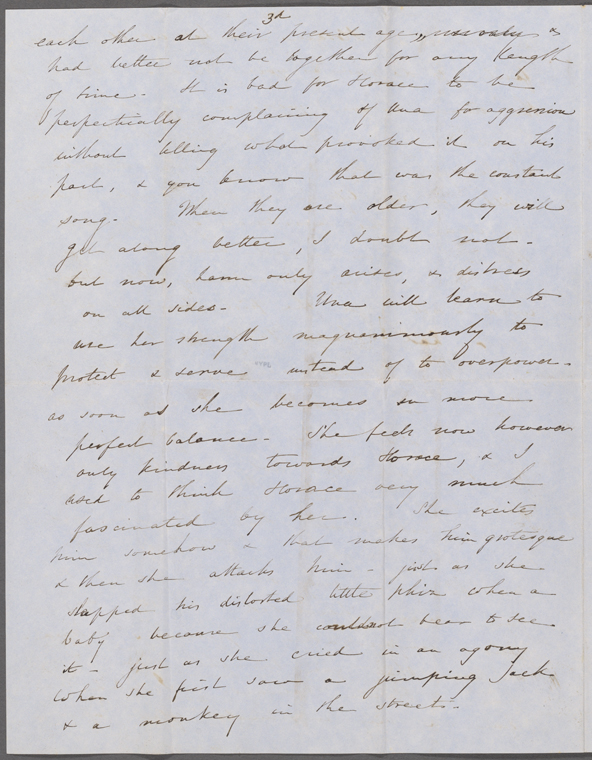 3d
each other at their present age, &
had better not be together for any length
of time. It is bad for Horace to be
perpetually complaining of Una for aggression
without telling what provoked it on his
part, & you know that was the constant
song. When they are older, they will
get along better, I doubt not.
but now, harm only arises, & distress
on all sides. Una will learn to
use her strength magnanimously to
protect & serve instead of to overpower.
as soon as she becomes in more
perfect balance. She feels now however
only kindness towards Horace, & I
used to think Horace very much
fascinated by her. She excites
him somehow & that makes him grotesque
& then she attacks him - just as she
slapped his distorted little phiz when a
baby because she could not bear to see
it - just as she cried in an agony
when she first saw a jumping Jack
& a monkey in the streets.